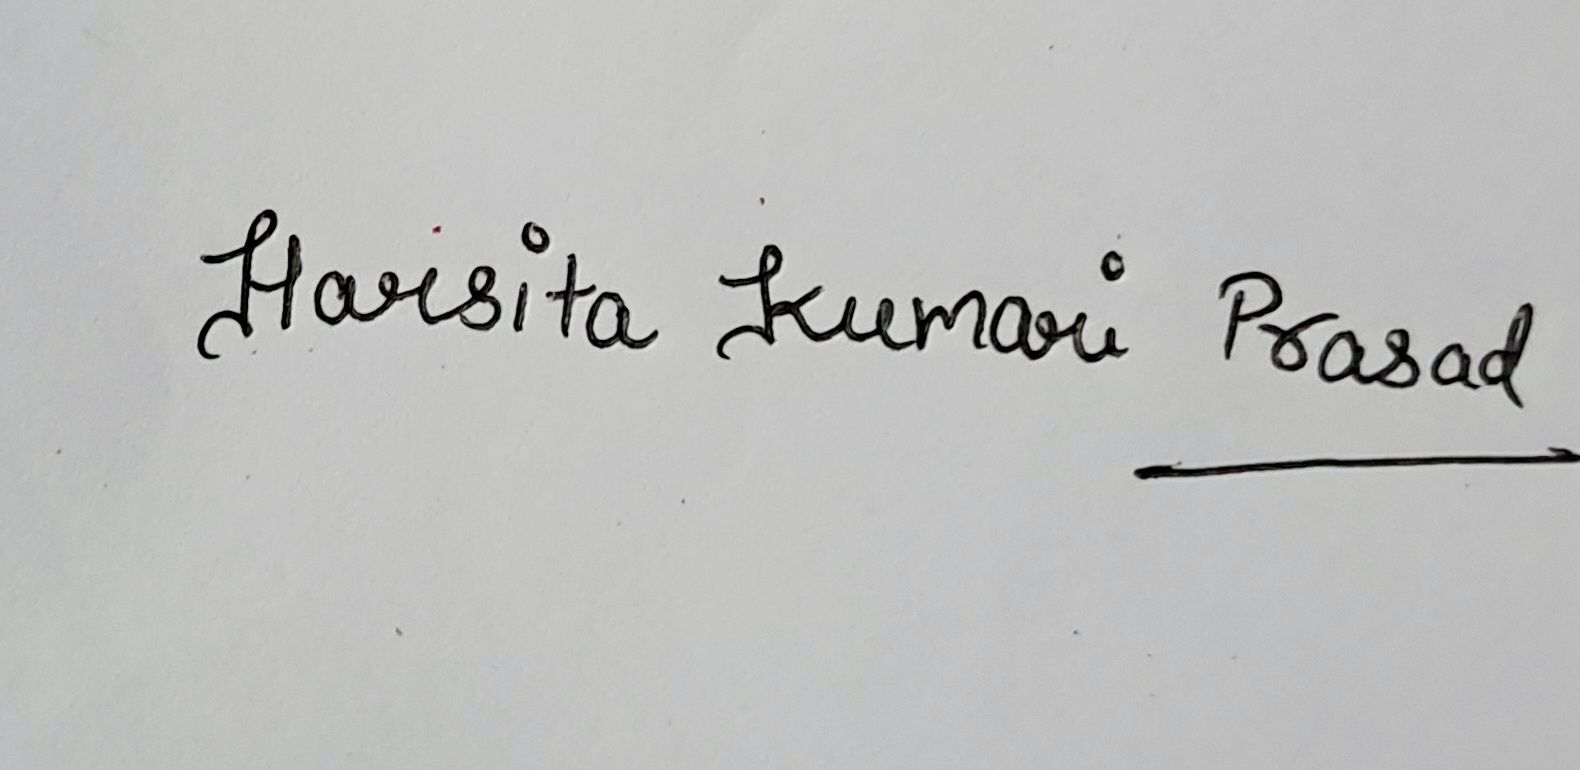 Harsita Kumari Prasad